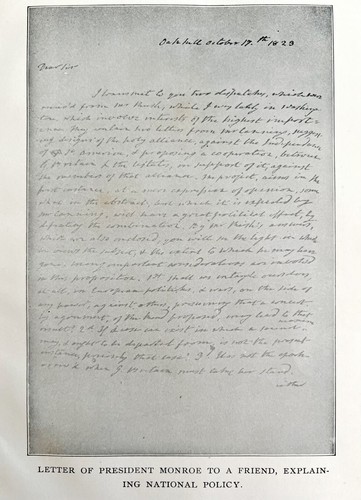 Oakhill October 17.th 1823
Dear Sir
I transmit to you two dispatches, which were
receiv'd from Mr Rush, while I was lately in Washing-
ton, which involve interests of the highest import-
ance. They contain two letters from Mr Canning, suggest-
ing designs of the holy alliance, against the Independence
of So. America, & proposing a co-operation, between
G. Britain & the UStates, in support of it, against
the members of that alliance. The project, aims in the
first instance, at a mere expression of opinion, some
what in the abstract, but which it is expected by
Mr Canning, will have a great political effect, by
defeating the combination. By Mr Rush's answers,
which are also enclosed, you will see the light in which
he views the subject, & the extent to which he may have
gone. Many important considerations are involved
in this proposition. 1st Shall we entangle ourselves,
at all, in European politicks, & wars, on the side of
any power, against others, presuming that a concert
by agreement, of the kind proposed, may lead to that
result? 2.d If a case can exist, in which a sound maxim
may, & ought to be departed from, is not the present
instance, precisely that case? 3.d Has not the epoch
arriv'd when G. Britain must take her stand,
either
LETTER OF PRESIDENT MONROE TO A FRIEND, EXPLAIN-
ING NATIONAL POLICY.